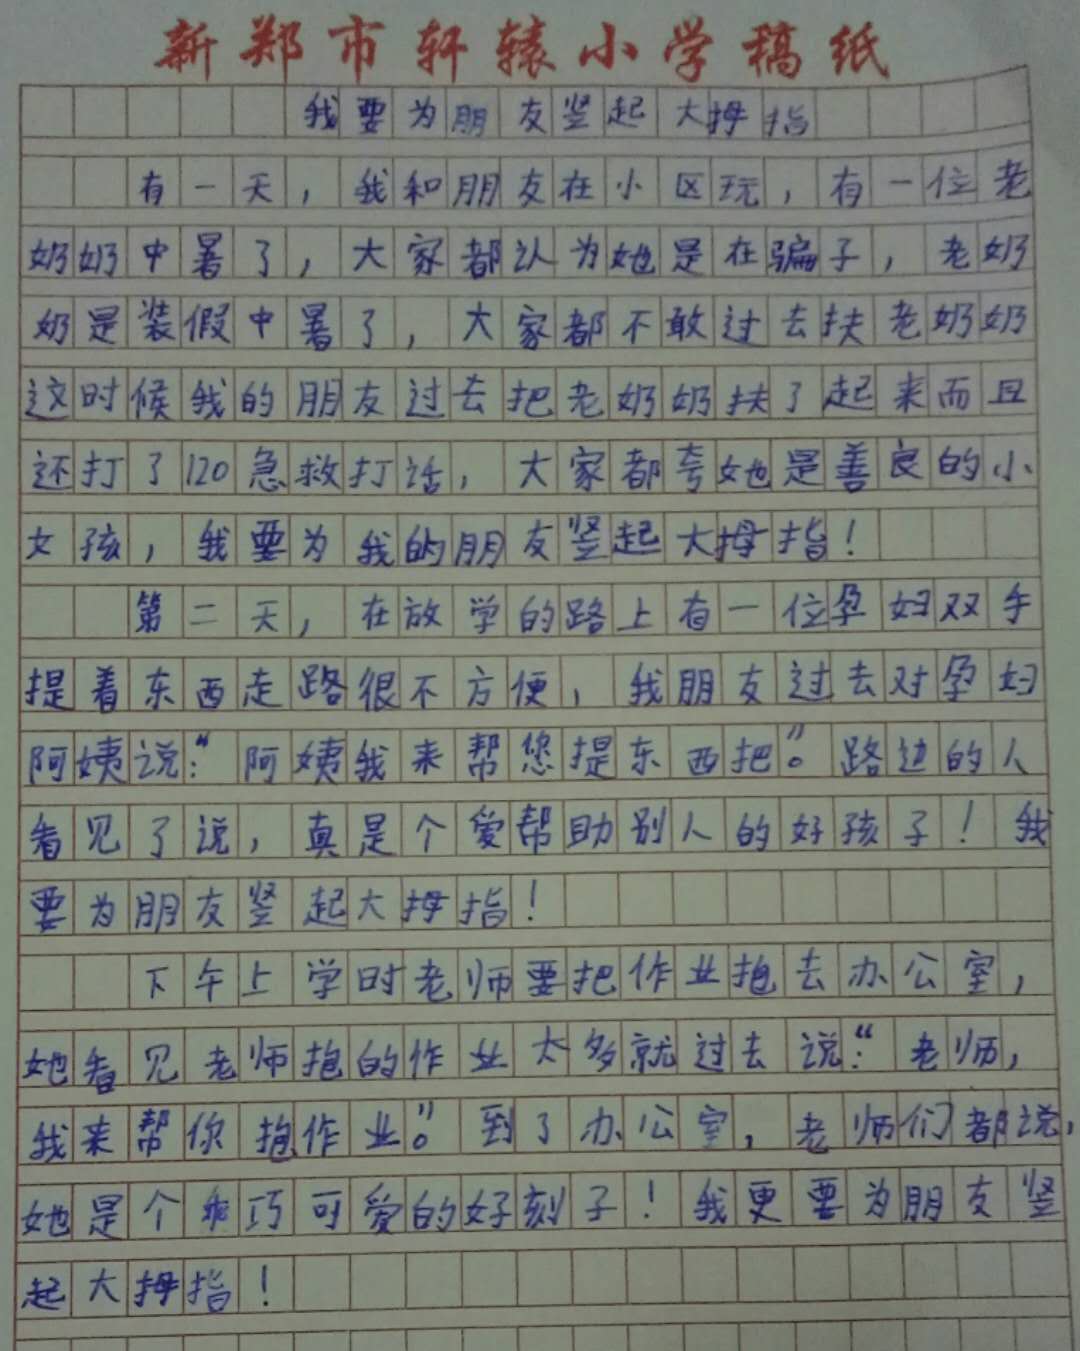 新郑市轩辕小学稿纸
我要为朋友竖起大拇指
有一天，我和朋友在小区玩，有一位老
奶奶中暑了，大家都认为她是在骗子，老奶
奶是装假中暑了，大家都不敢过去扶老奶奶
这时候我的朋友过去把老奶奶扶了起来而且
还打了120急救打话，大家都夸她是善良的小
女孩，我要为我的朋友竖起大拇指！
第二天，在放学的路上有一位孕妇双手
提着东西走路很不方便，我朋友过去对孕妇
阿姨说：“阿姨我来帮您提东西把”。路边的人
看见了说，真是个爱帮助别人的好孩子！我
要为朋友竖起大拇指！
下午上学时老师要把作业抱去办公室，
她看见老师抱的作业太多就过去说：“老师，
我来帮你抱作业”。到了办公室，老师们都说，
她是个乖巧可爱的好刻子！我更要为朋友竖
起大拇指！